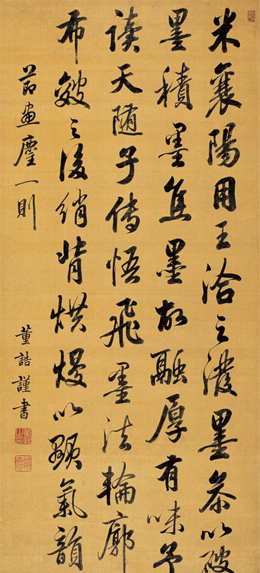 米襄陽用王洽之潑墨参以破
墨積墨焦墨故融厚有味予
讀天隨子傳悟飛墨法輪廓
布皴之後綃背烘熳以顯氣韻
節畫麈一則
董誥謹書